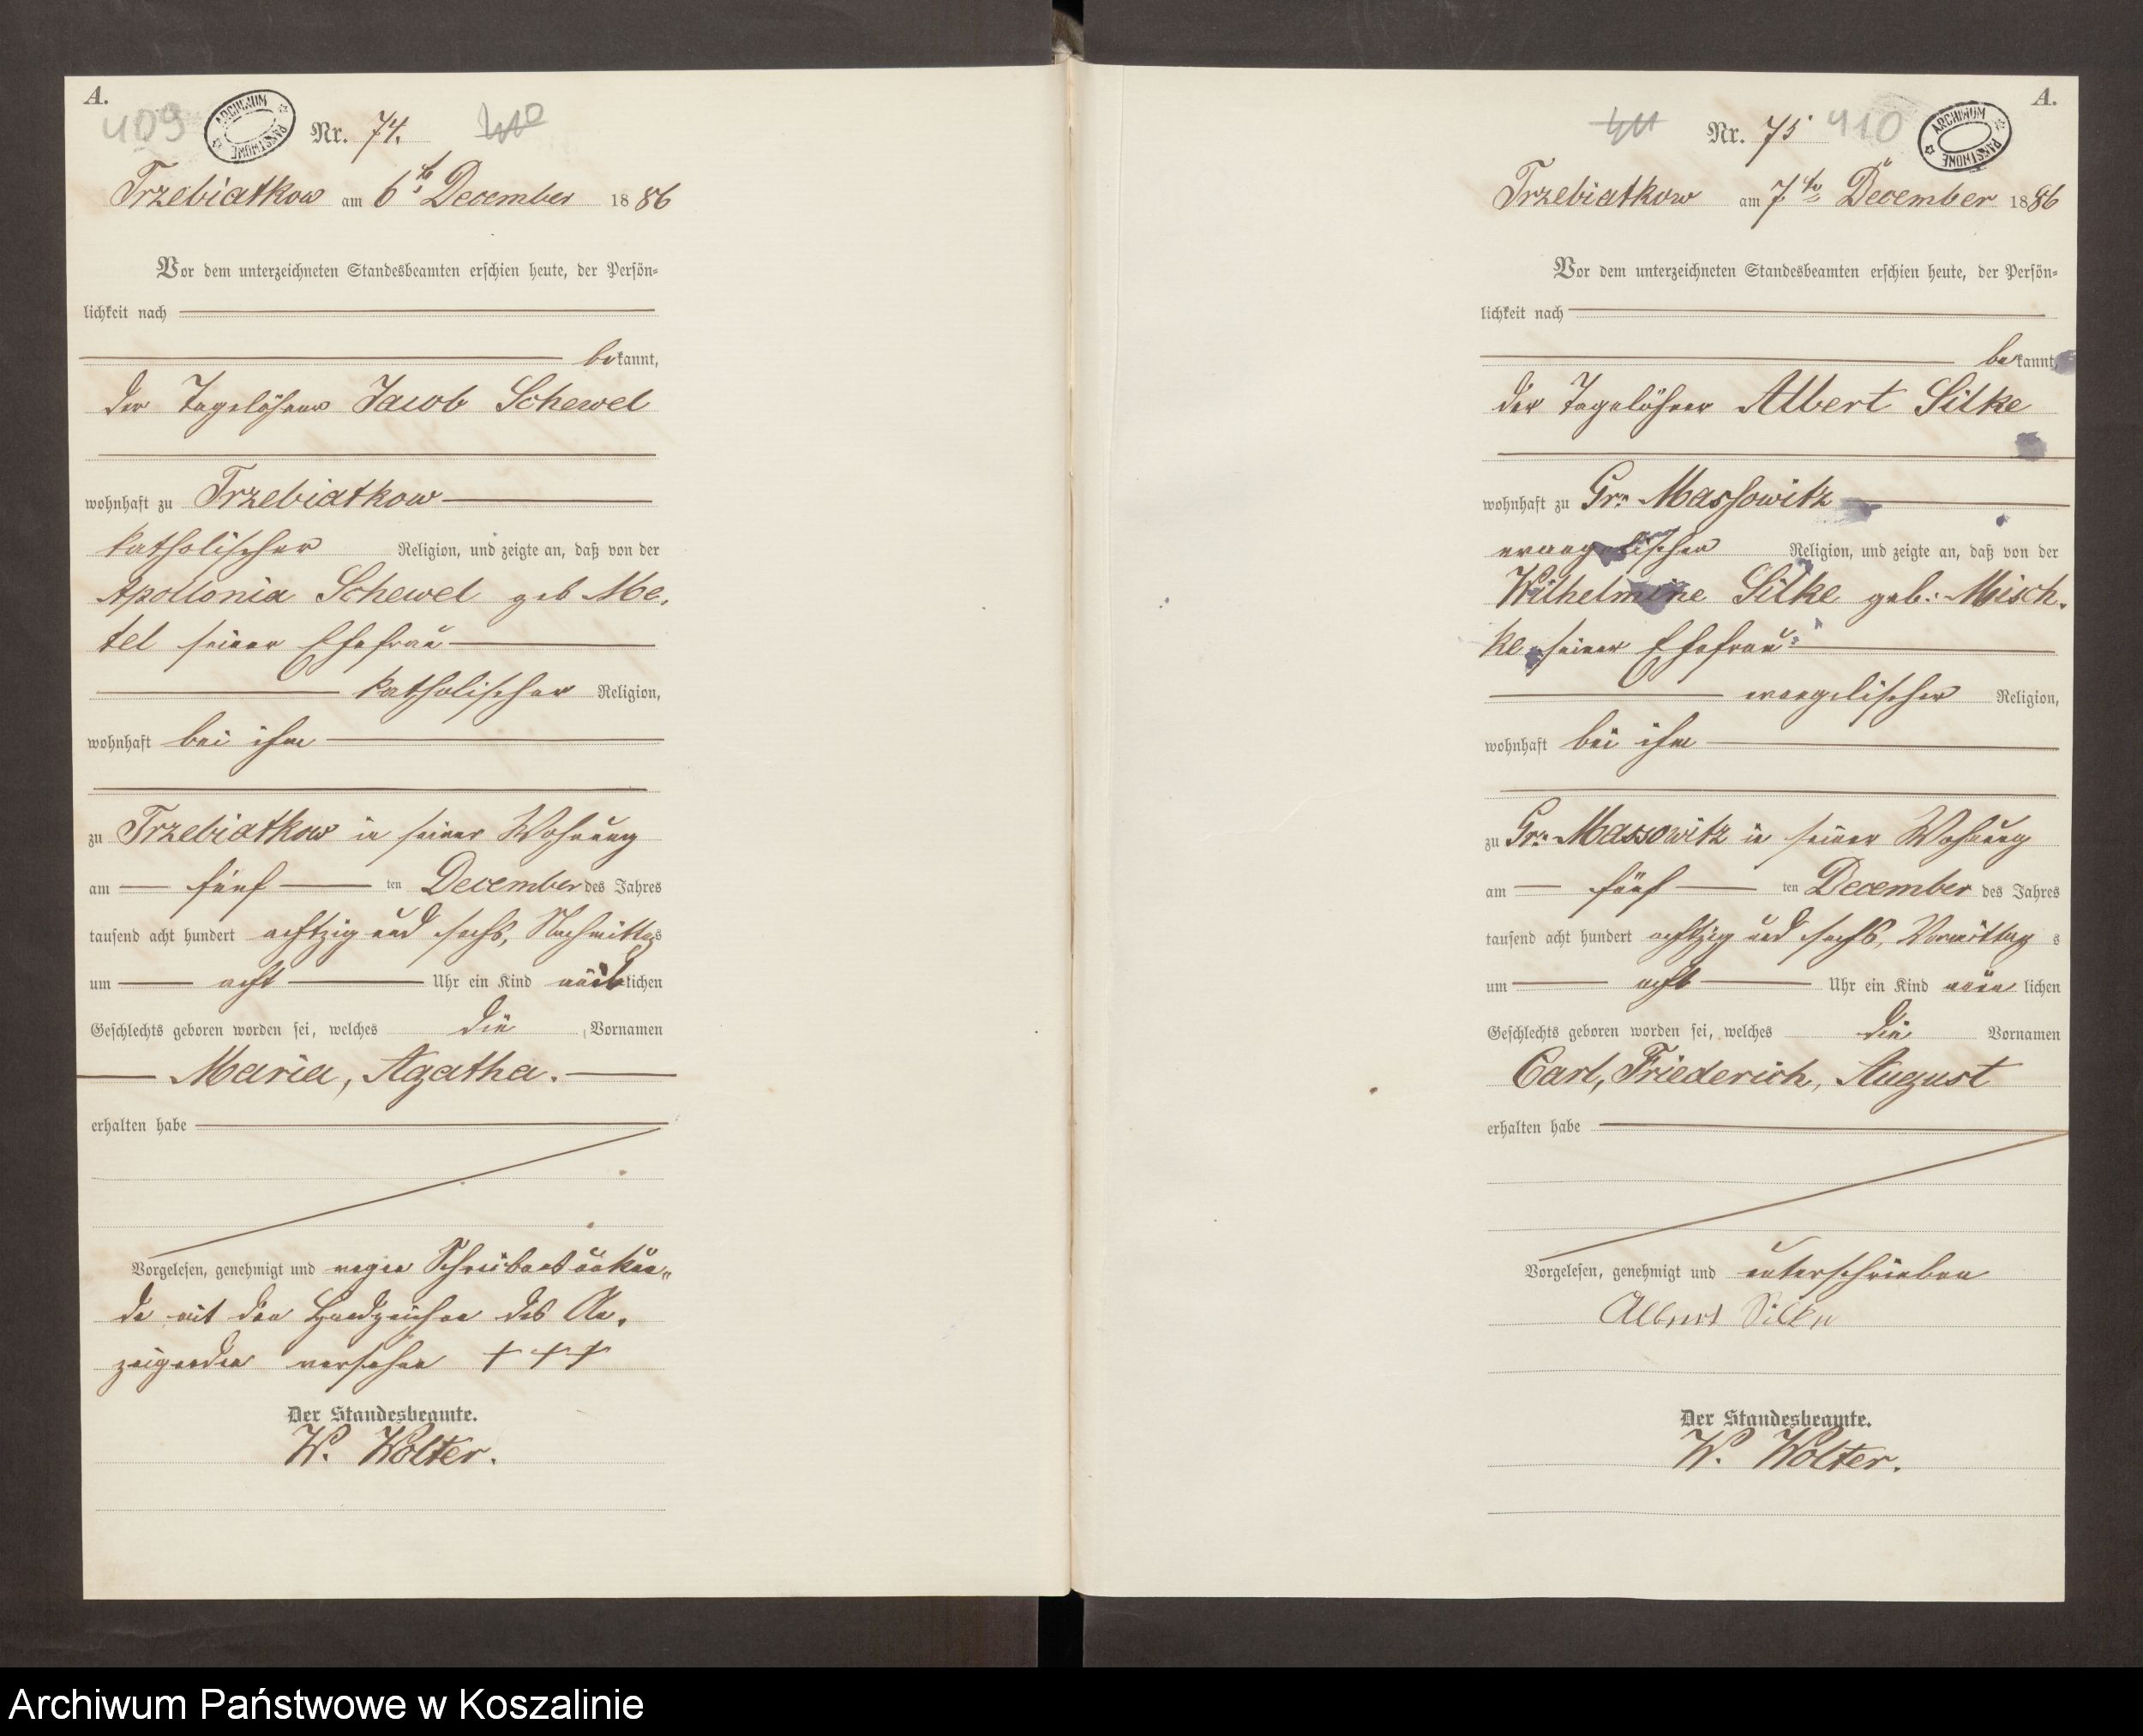 A.
409
ARCHIWUM PAŃSTWOWE
Nr. 74.
410
Trzebiatkow am 6ten December 1886
Vor dem unterzeichneten Standesbeamten erschien heute, der Persön-
lichkeit nach
bekannt,
der Tagelöhner Jacob Schewel
wohnhaft zu Trzebiatkow
katholischer Religion, und zeigte an, daß von der
Apollonia Schewel geb Me-
tel seiner Ehefrau
katholischer Religion,
wohnhaft bei ihm
zu Trzebiatkow in seiner Wohnung
am fünf ten December des Jahres
tausend acht hundert achtzig und sechs, Nachmittags
um acht Uhr ein Kind weiblichen
Geschlechts geboren worden sei, welches die Vornamen
Maria, Agatha.
erhalten habe
Vorgelesen, genehmigt und wegen Schreibensunkun-
de mit den Handzeichen des An-
zeigenden versehen + + +
Der Standesbeamte.
W. Wolter.
A.
411
Nr. 75
410
ARCHIWUM PAŃSTWOWE
Trzebiatkow am 7ten December 1886
Vor dem unterzeichneten Standesbeamten erschien heute, der Persön-
lichkeit nach
bekannt,
der Tagelöhner Albert Silke
wohnhaft zu Gr. Massowitz
evangelischer Religion, und zeigte an, daß von der
Wilhelmine Silke geb. Misch-
ke seiner Ehefrau
evangelischer Religion,
wohnhaft bei ihm
zu Gr. Massowitz in seiner Wohnung
am fünf ten December des Jahres
tausend acht hundert achtzig und sechs, Vormittags
um acht Uhr ein Kind männlichen
Geschlechts geboren worden sei, welches die Vornamen
Carl, Friederich, August
erhalten habe
Vorgelesen, genehmigt und unterschrieben
Albert Silke
Der Standesbeamte.
W. Wolter.
Archiwum Państwowe w Koszalinie